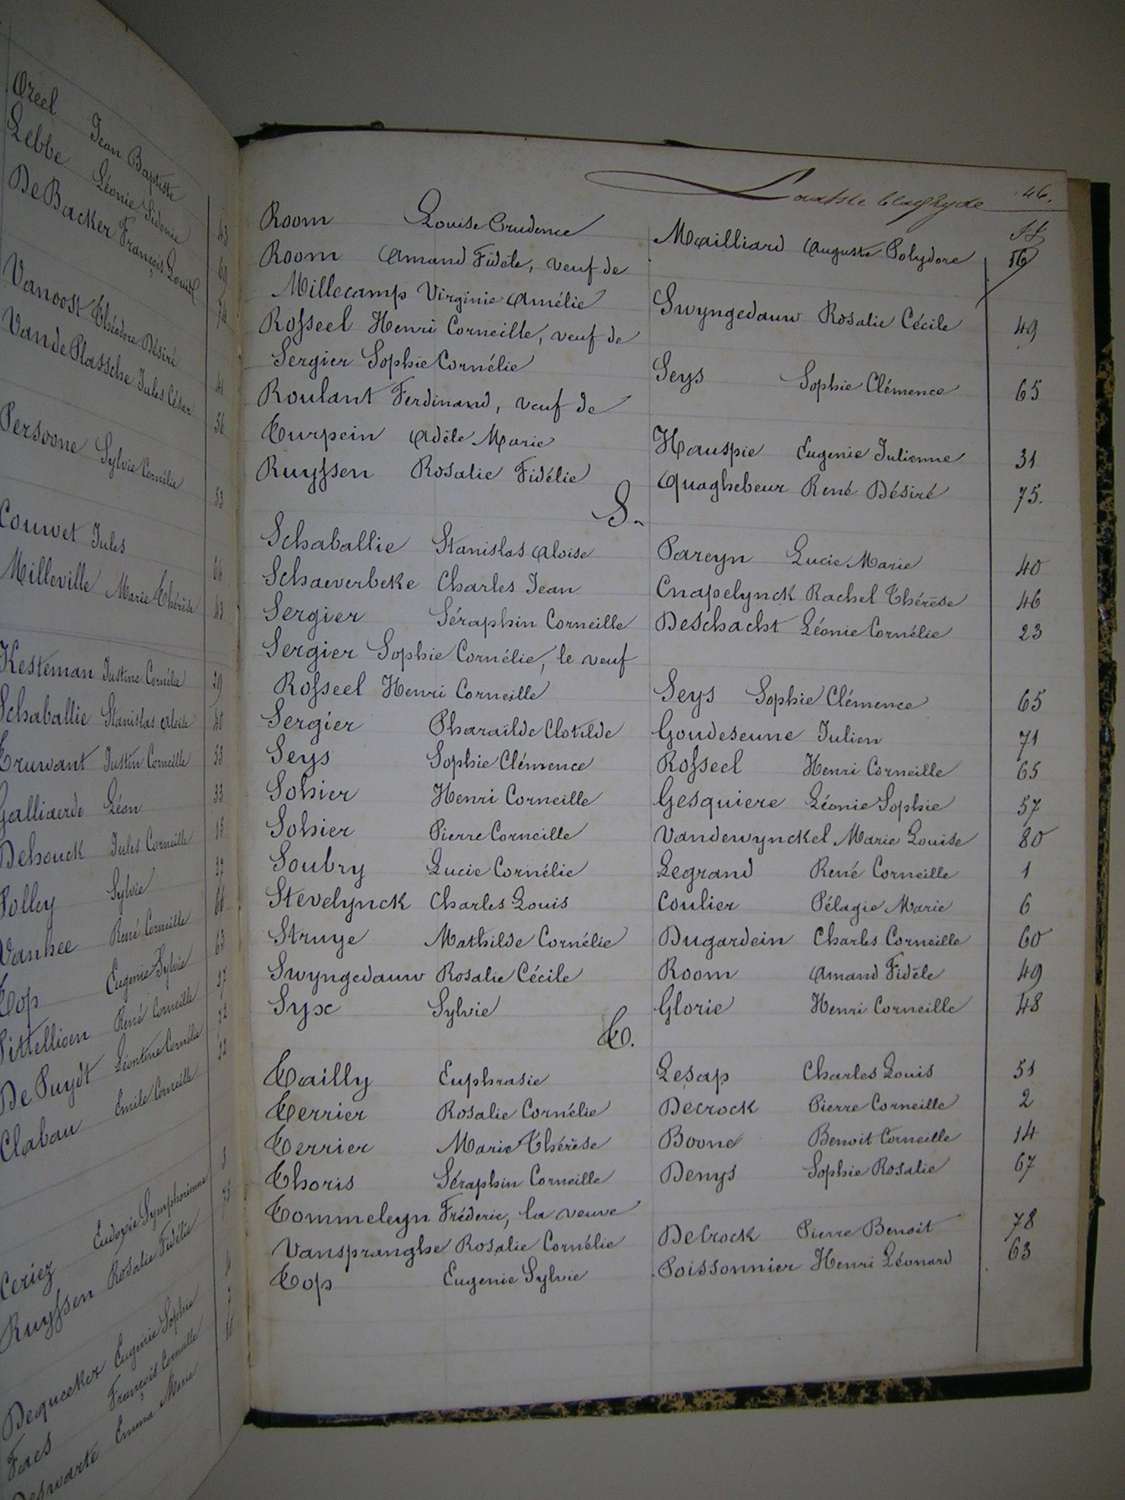 Oreel Jean Baptiste
Lebbe Léonie Sidonie 43
De Backer François Louis
Vanoost Théodore Désiré
Vande Plassche Jules César
Persoone Sylvie Cornélie
Couvet Jules
Milleville Marie Thérèse
Kesteman Justine Cornélie
Schaballie Stanislas Aloise
Cruwant Justin Corneille
Galliaerde Léon
Dehouck Jules Corneille
Polley Sylvie
Vanhee René Corneille
Top Eugenie Sylvie
Pittellioen René Corneille
De Puydt Léontine Cornélie
Clabau Emile Corneille
Ceriez Eudoxie Symphorienne
Ruyssen Rosalie Fidélie
Dequeker Eugénie Sophie
Faes François Corneille
Emma Marie
Laatste bladzyde 46.
Room Louise Prudence Mailliard Auguste Polydore 16
Room Amand Fidèle, veuf de
Millecamp Virginie Amélie Swyngedauw Rosalie Cécile 49
Rosseel Henri Corneille, veuf de
Sergier Sophie Cornélie Seys Sophie Clémence 65
Roulant Ferdinand, veuf de
Turpein Adèle Marie Hauspie Eugenie Julienne 31
Ruyssen Rosalie Fidélie Quaghebeur René Désiré 75.
S.
Schaballie Stanislas Aloise Pareyn Lucie Marie 40
Schaeverbeke Charles Jean Cnapelynck Rachel Thérèse 46
Sergier Séraphin Corneille Deschacht Léonie Cornélie 23
Sergier Sophie Cornélie, le veuf
Rosseel Henri Corneille Seys Sophie Clémence 65
Sergier Pharaïlde Clotilde Goudeseune Julien 71
Seys Sophie Clémence Rosseel Henri Corneille 65
Sohier Henri Corneille Gesquiere Léonie Sophie 57
Sohier Pierre Corneille Vandewynckel Marie Louise 80
Soubry Lucie Cornélie Legrand René Corneille 1
Stevelynck Charles Louis Coulier Pélagie Marie 6
Struye Mathilde Cornélie Dugardein Charles Corneille 60
Swyngedauw Rosalie Cécile Room Amand Fidèle 49
Syx Sylvie Glorie Henri Corneille 48
T.
Tailly Euphrasie Lesap Charles Louis 51
Terrier Rosalie Cornélie Decrock Pierre Corneille 2
Terrier Marie Thérèse Boone Benoit Corneille 14
Thoris Séraphin Corneille Denys Sophie Rosalie 67
Tommeleyn Fréderic, la veuve
Vanspranghe Rosalie Cornélie Decrock Pierre Benoit 78
Top Eugenie Sylvie Poissonnier Henri Léonard 63